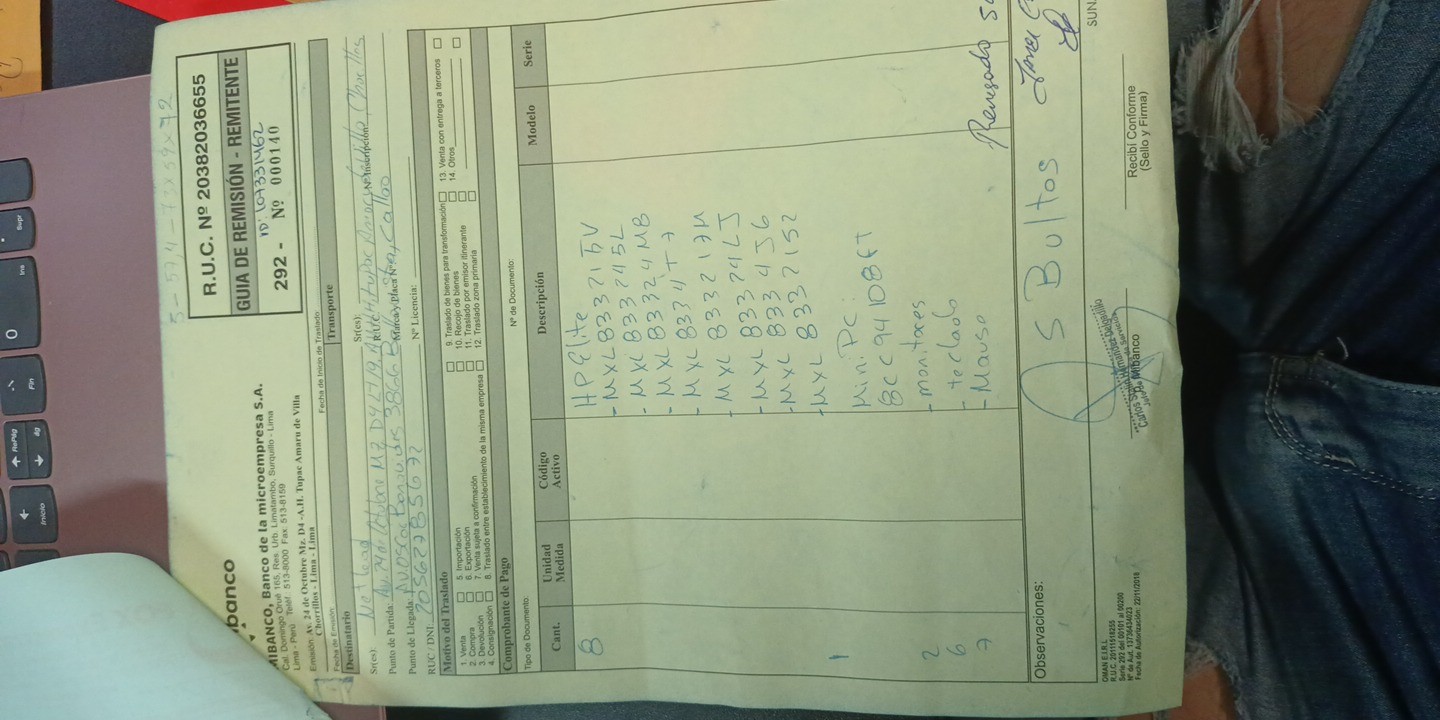 5 - 574 - 73x59x72
R.U.C. Nº 20382036655
GUIA DE REMISIÓN - REMITENTE
ID: 107331462
292 - Nº 000140
banco
MIBANCO, Banco de la microempresa S.A.
Cal. Domingo Orué 165, Res. Urb. Limatambo, Surquillo - Lima
Lima - Perú Telf.: 513-8000 Fax: 513-8159
Emisión: Av. 24 de Octubre Mz. D4 -A.H. Tupac Amaru de Villa
Chorrillos - Lima - Lima
Fecha de Emisión Fecha de Inicio de Traslado:
Destinatario Transporte
Sr(es): Sr(es):
Punto de Partida: Av. 24 de Octubre Mz D4 Nº Inscripción:
Punto de Llegada: Av. Oscar 3866 Callao Marca y Placa Nº
RUC / DNI: Nº Licencia:
Motivo del Traslado
1. Venta 5. Importación 9. Traslado de bienes para transformación 13. Venta con entrega a terceros
2. Compra 6. Exportación 10. Recojo de bienes 14. Otros
3. Devolución 7. Venta sujeta a confirmación 11. Traslado por emisor itinerante
4. Consignación 8. Traslado entre establecimiento de la misma empresa 12. Traslado zona primaria
Comprobante de Pago
Tipo de Documento: Nº de Documento:
Cant. Unidad Medida Código Activo Descripción Modelo Serie
8 HP Elite
- MXL
- MXL 833245L
- MXL 83324MB
- MXL
- MXL
- MXL 83324LJ
- MXL 8334J6
- MXL 8332152
1 Mini PC:
8CC94108FT
2 - monitores
6 - teclado
7 - Mause
Observaciones: 5 Bultos
Carlos
Jefe de Servicios
Mibanco
Recibí Conforme
(Sello y Firma)
SUN
OMAN E.I.R.L.
R.U.C. 20111518255
Serie 292 del 00101 al 00200
Nº de Aut. 1736434023
Fecha de Autorización: 22/11/2018